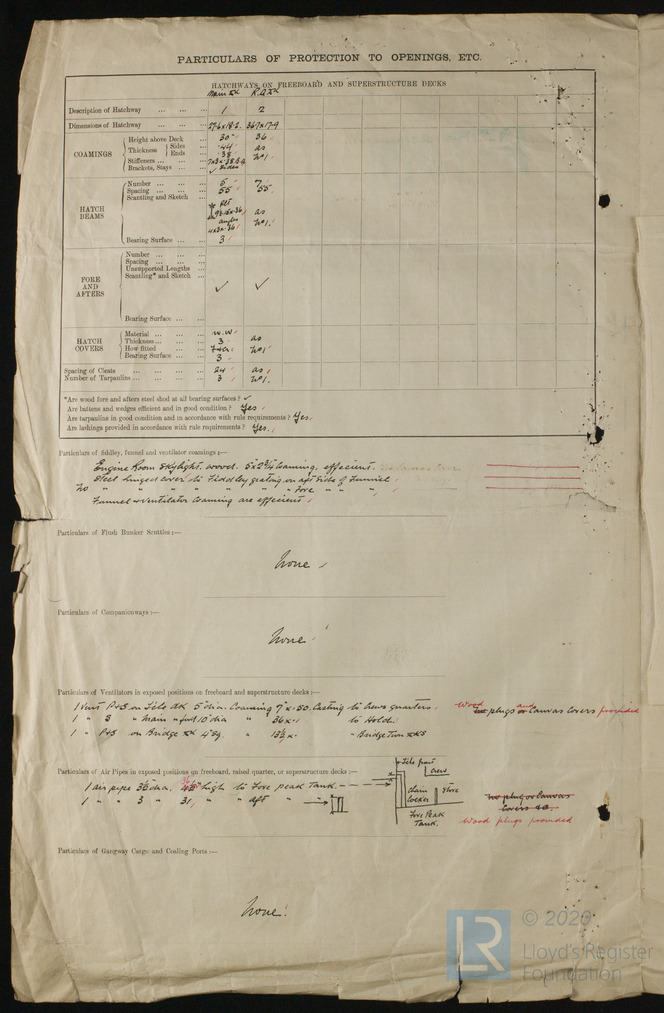 PARTICULARS OF PROTECTION TO OPENINGS, ETC.
HATCHWAYS ON FREEBOARD AND SUPERSTRUCTURE DECKS
Main Dk R.Q.Dk
Description of Hatchway ... ... ... 1 2
Dimensions of Hatchway ... ... ... 27.6 x 18.2. 36.7 x 17.9
COAMINGS
Height above Deck ... 30" 36
Thickness Sides .44 as
Ends .38 No 1.
Stiffeners ... ... ...
Brackets, Stays ... ... ✓ Sides
HATCH BEAMS
Number ... ... ... 5 7
Spacing ... ... ... 55 55
Scantling and Sketch
plt
angles as
No 1.
Bearing Surface ... ... 3
FORE AND AFTERS
Number ... ... ...
Spacing ... ... ...
Unsupported Lengths ...
Scantling* and Sketch ...
✓ ✓
Bearing Surface ... ...
HATCH COVERS
Material ... ... ... W.W.
Thickness... ... ... 3 as
How fitted ... ... F & A No 1
Bearing Surface ... ... 3
Spacing of Cleats ... ... ... 24 as
Number of Tarpaulins ... ... ... 3 No 1.
*Are wood fore and afters steel shod at all bearing surfaces? ✓
Are battens and wedges efficient and in good condition? Yes
Are tarpaulins in good condition and in accordance with rule requirements? Yes.
Are lashings provided in accordance with rule requirements? Yes.
Particulars of fiddley, funnel and ventilator coamings:—
Engine Room Skylight. wood. 5" x 2 3/4 Coaming, effecient.
Steel hinged cover to Fiddley grating on aft side of Funnel
No " " " " " " " Fore " " "
Funnel & Ventilator Coaming are effecient
Particulars of Flush Bunker Scuttles:—
None
Particulars of Companionways:—
None
Particulars of Ventilators in exposed positions on freeboard and superstructure decks:—
1 Vent P&S on Fcle dk 5" dia. Coaming 7" x .50. Casting to Crews quarters. Wood plugs and Canvas Covers provided
1 " S " Main " fwd 10" dia " 36 x to Hold.
1 " P&S on Bridge Dk 4" sq. " " Bridge Tween dks
Particulars of Air Pipes in exposed positions on freeboard, raised quarter, or superstructure decks:—
1 air pipe 3½" dia. 36" high to Fore peak Tank.
1 " " 3 " 31 " " aft "
Fcle front
crew
chain locker
store
Fore Peak Tank.
No plug or Canvas Covers
Wood plugs provided
Particulars of Gangway Cargo and Coaling Ports:—
None.
LR
© 2020
Lloyd's Register
Foundation